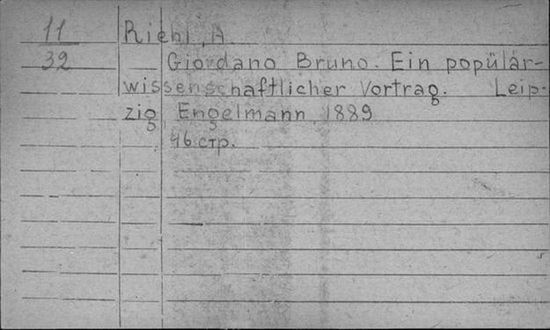 11 Riehl, A
32 Giordano Bruno. Ein populär-
wissenschaftlicher Vortrag. Leip-
zig, Engelmann, 1889
46 стр.